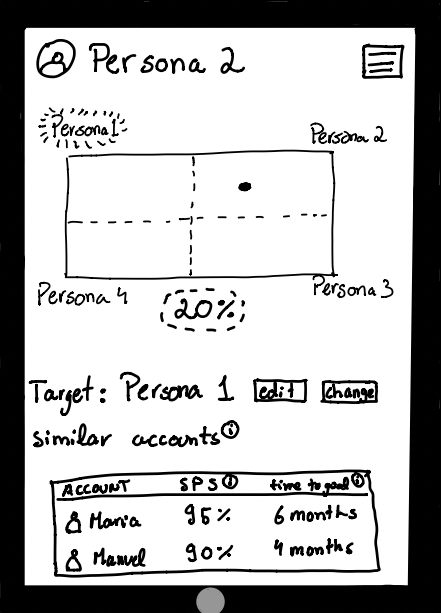 Persona 2
Persona 1
Persona 2
Persona 4
Persona 3
20%
Target: Persona 1 edit change
similar accounts i
ACCOUNT SPS i time to goal i
Maria 95% 6 months
Manuel 90% 4 months